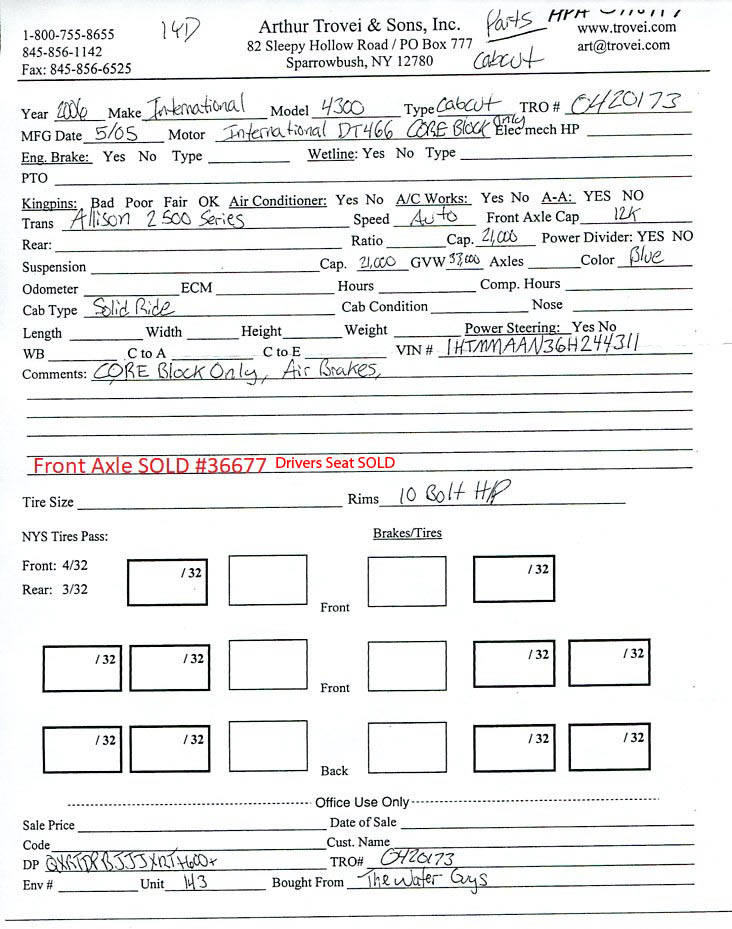 1-800-755-8655
845-856-1142
Fax: 845-856-6525
14D
Arthur Trovei & Sons, Inc.
82 Sleepy Hollow Road / PO Box 777
Sparrowbush, NY 12780
Parts
Cabcut
www.trovei.com
art@trovei.com
Year 2006 Make International Model 4300 Type Cabcut TRO # 0420173
MFG Date 5/05 Motor International DT466 CORE Block Only Elec mech HP
Eng. Brake: Yes No Type Wetline: Yes No Type
PTO
Kingpins: Bad Poor Fair OK Air Conditioner: Yes No A/C Works: Yes No A-A: YES NO
Trans Allison 2500 Series Speed Auto Front Axle Cap 12K
Rear: Ratio Cap. 21,000 Power Divider: YES NO
Suspension Cap. 21,000 GVW 33,000 Axles Color Blue
Odometer ECM Hours Comp. Hours
Cab Type Solid Ride Cab Condition Nose
Length Width Height Weight Power Steering: Yes No
WB C to A C to E VIN # 1HTMMAAN36H244311
Comments: CORE Block Only, Air Brakes,
Front Axle SOLD #36677 Drivers Seat SOLD
Tire Size Rims 10 Bolt HP
NYS Tires Pass: Brakes/Tires
Front: 4/32
Rear: 3/32
/ 32 / 32
Front
/ 32 / 32 / 32 / 32
Front
/ 32 / 32 / 32 / 32
Back
Office Use Only
Sale Price Date of Sale
Code Cust. Name
DP TRO# 0420173
Env # Unit 143 Bought From The Water Guys